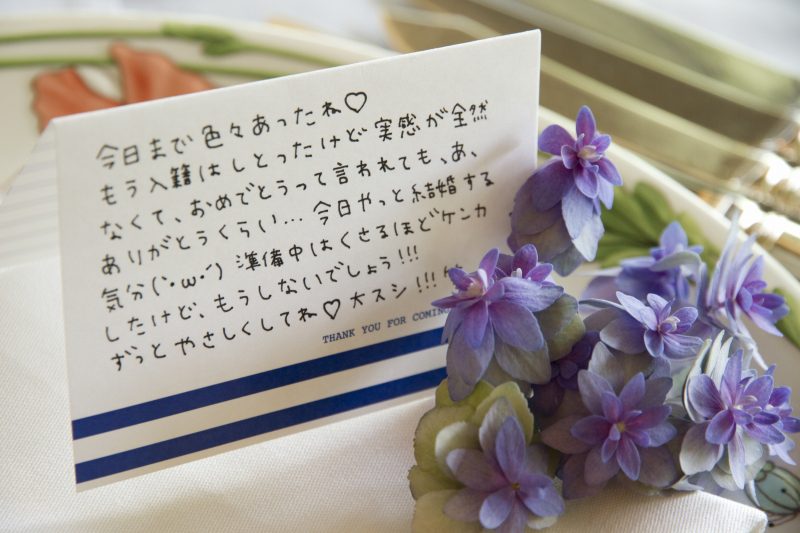 今日まで色々あったね♡
もう入籍はしとったけど実感が全然
なくて、おめでとうって言われても、あ、
ありがとうくらい…今日やっと結婚する
気分(｀･ω･´)準備中はくさるほどケンカ
したけど、もうしないでしょう!!!
ずっとやさしくしてね♡大スシ!!!
THANK YOU FOR COMING